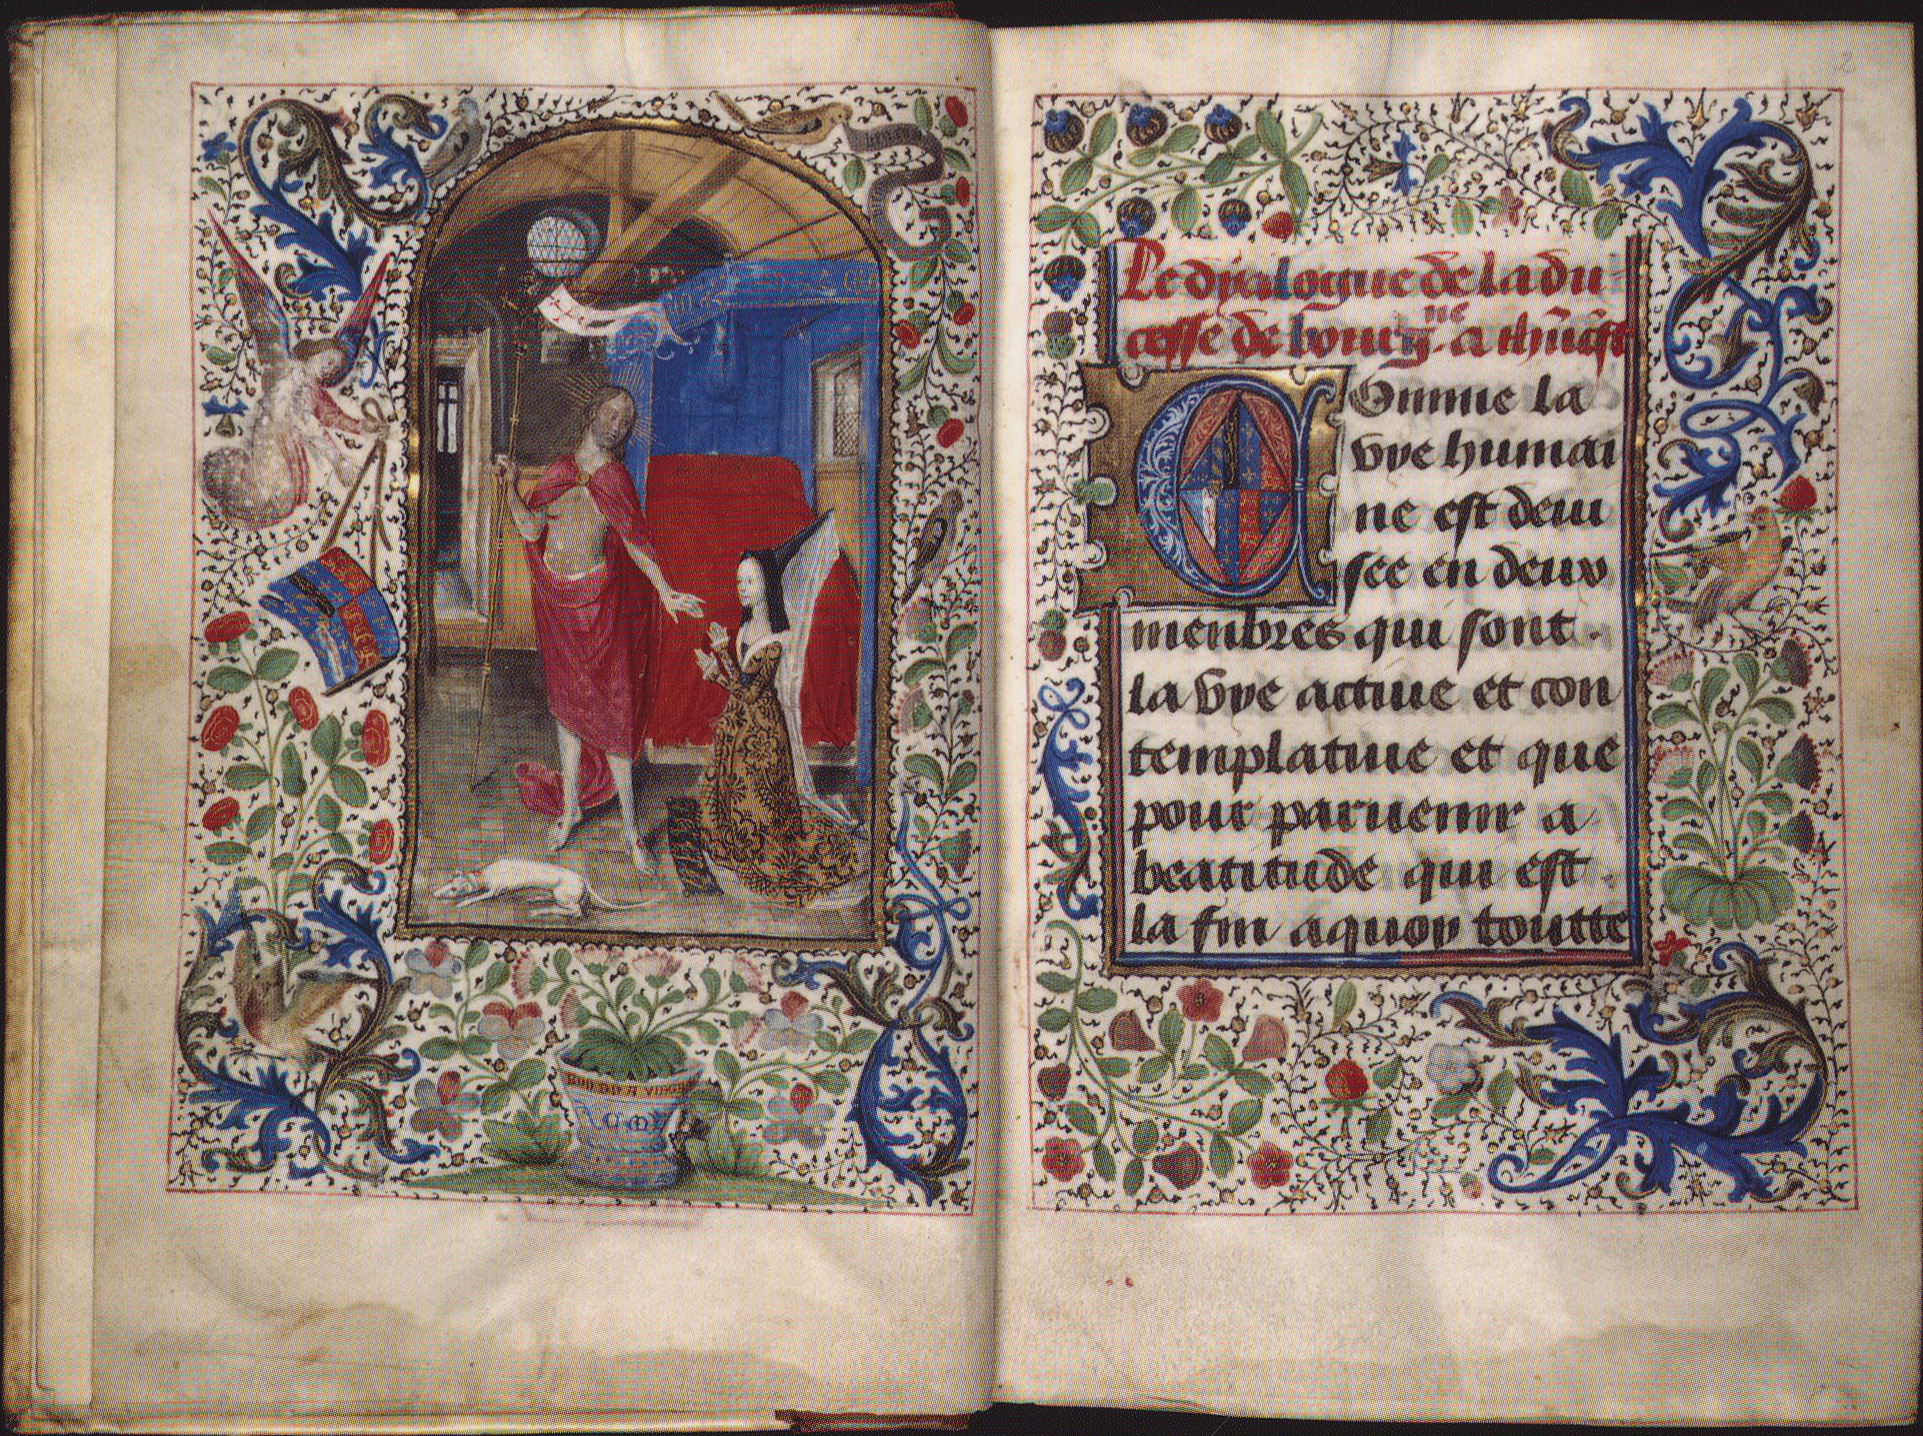 Le dyalogue de la du
cesse de bourg.ne a ihũ crist
Comme la
vye humai
ne est deui
see en deux
menbres qui sont .
la vye actiue et con
templatiue et que
pour paruenir a
beatitude qui est .
la fin a quoy toutte
2